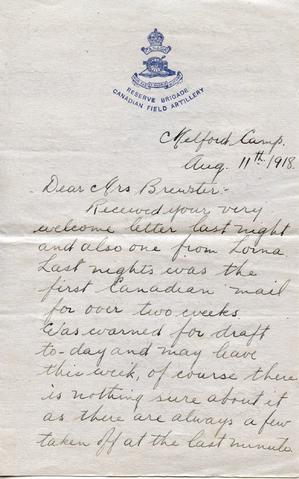 RESERVE BRIGADE
CANADIAN FIELD ARTILLERY
Milford Camp.
Aug. 11th. 1918.
Dear Mrs. Brewster:-
Received your very
welcome letter last night
and also one from Lorna.
Last nights was the
first Canadian mail
for over two weeks.
Was warned for draft
to-day and may leave
this week, of course there
is nothing sure about it
as there are always a few
taken off at the last minute